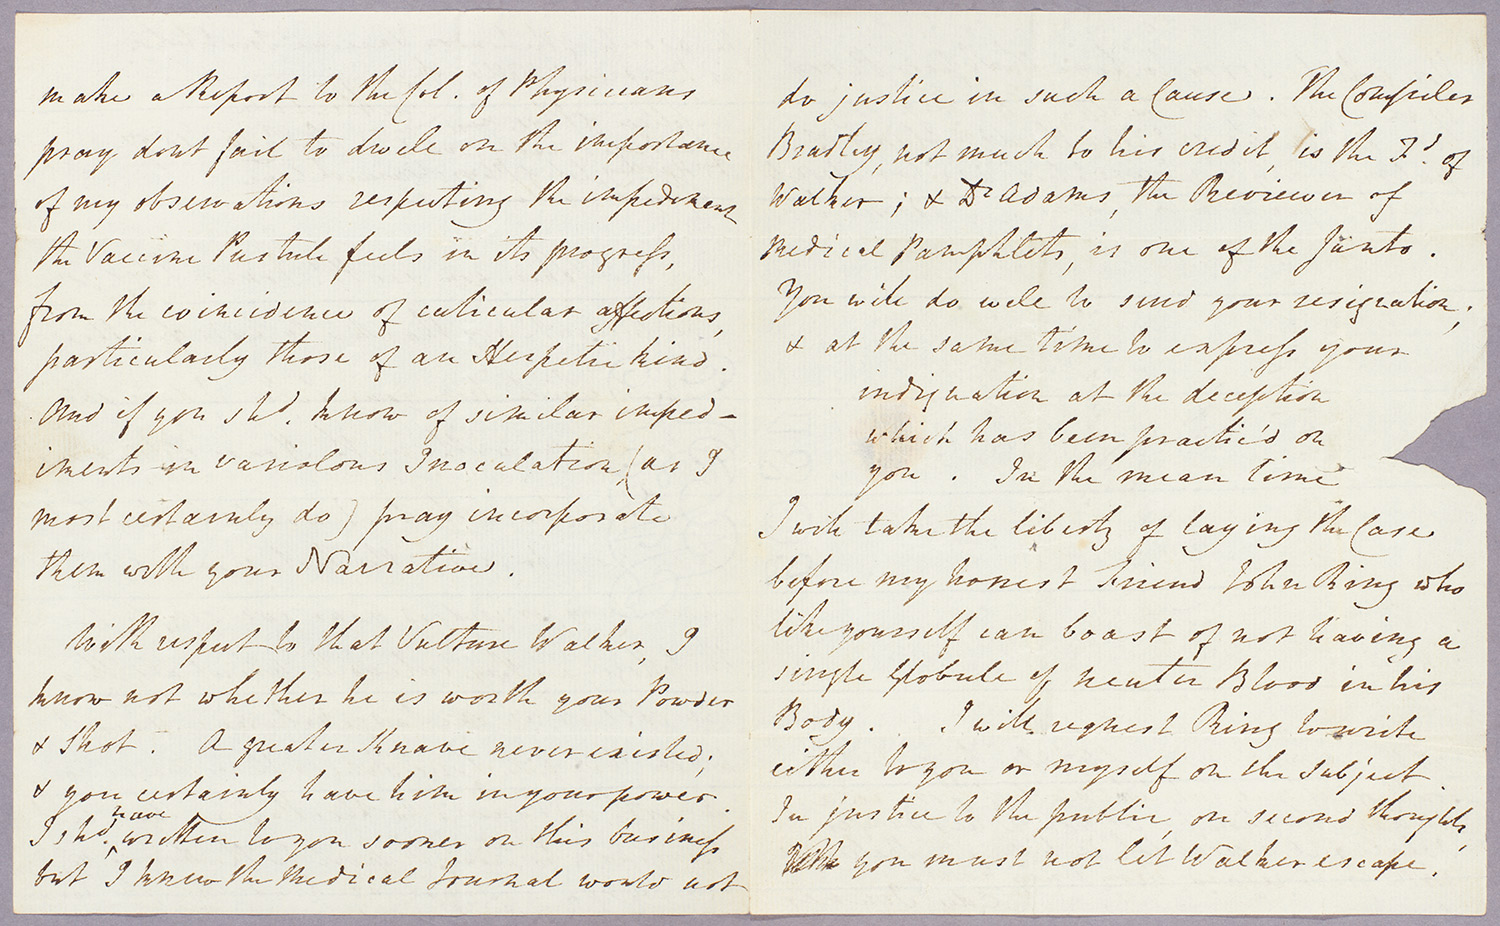 make a Report to the Col. of Physicians
pray dont fail to dwell on the importance
of my observations respecting the impediment
the Vaccine Pustule feels in its progress,
from the coincidence of cuticular affections,
particularly those of an Herpetic kind.
And if you shd. know of similar imped-
iments in variolous Inoculation (as I
most certainly do) pray incorporate
them with your Narrative.
With respect to that Vulture Walker, I
know not whether he is worth your Powder
& Shot. A greater Knave never existed;
& you certainly have him in your power.
I shd. have written to you sooner on this business
but I knew the Medical Journal would not
do justice in such a Cause. The Compiler
Bradley, not much to his credit, is the Fd. of
Walker; & Dr Adams, the Reviewer of
Medical Pamphlets, is one of the Junto.
You will do well to send your resignation;
& at the same time to express your
indignation at the deception
which has been practic'd on
you. In the mean time
I will take the liberty of laying the Case
before my honest friend John Ring who
like yourself can boast of not having a
single Globule of neuter Blood in his
Body. I will request Ring to write
either to you or myself on the subject.
In justice to the public, on second thoughts,
you must not let Walker escape.